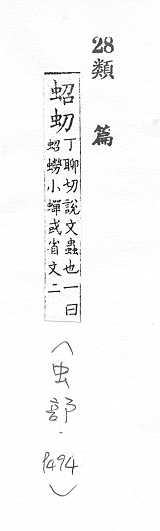 28類 篇
蛁虭丁聊切說文蟲也一曰
蛁蟧小蟬或省文二
(虫部.p.494)